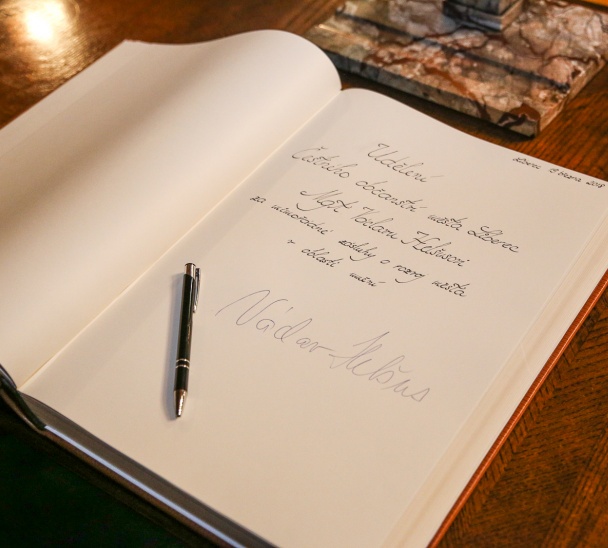 Liberec 8. března 2018
Udělení
Čestného občanství města Liberec
Mgr. Václavu Helšusovi
za mimořádné zásluhy o rozvoj města
v oblasti umění
Václav Helšus